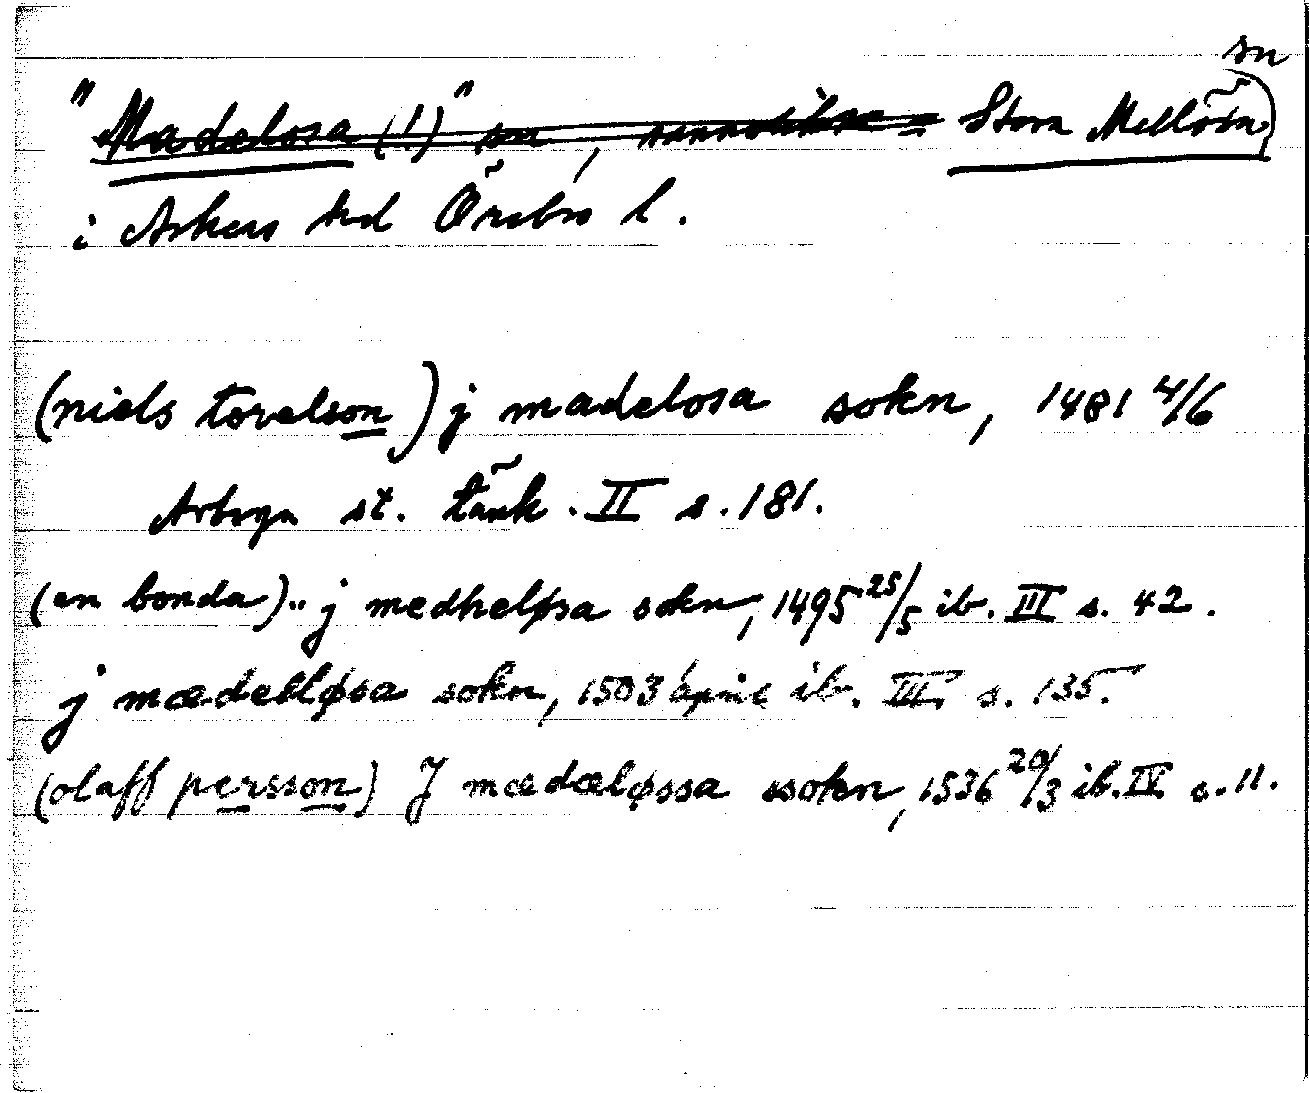 sn
"Madelosa (!)" sn, sannolikt = Stora Mellösa
i Askers hd Örebro l.
(niels torelson) j madelosa sokn, 1481 4/6
Arboga st. tänk. II s. 181.
(en bonda).. j medheløsa sokn, 1495 25/5 ib. III s. 42.
j mædelløsa sokn, 1503 april ib. III s. 135.
(olaff persson) J mædæløssa ssokn, 1536 20/3 ib. IV s. 11.